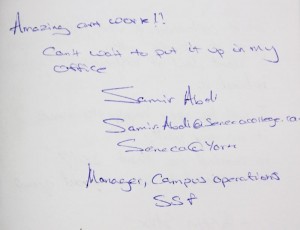 Amazing art work!!
Can't wait to put it up in my
office
Samir Abdi
Samir.Abdi@senecacollege.ca
Seneca@York
Manager, Campus operations
SSF